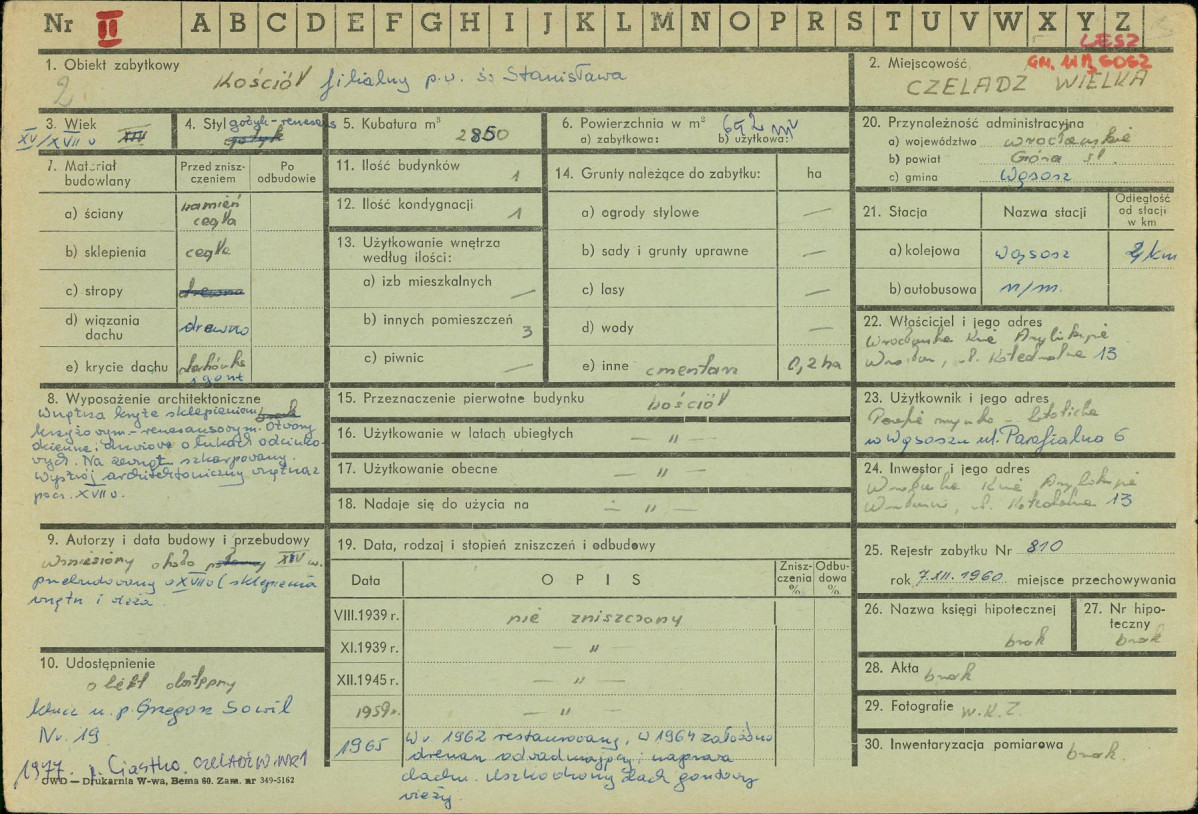 Nr II A B C D E F G H I J K L M N O P R S T U V W X Y Z
LESZ
1. Obiekt zabytkowy
2
Kościół filialny p.w. św. Stanisława
2. Miejscowość
GM. WĄSOSZ
CZELADZ WIELKA
3. Wiek
XV/XVII w XIV
4. Styl gotyk-renesans
gotyk
5. Kubatura m³
2850
6. Powierzchnia w m²
a) zabytkowa: b) użytkowa:
692 m²
20. Przynależność administracyjna
a) województwo wrocławskie
b) powiat Góra śl.
c) gmina Wąsosz
7. Materiał budowlany
Przed zniszczeniem
Po odbudowie
a) ściany kamień cegła
b) sklepienia cegła
c) stropy drewno
d) wiązania dachu drewno
e) krycie dachu dachówka i gont
11. Ilość budynków 1
12. Ilość kondygnacji 1
13. Użytkowanie wnętrza według ilości:
a) izb mieszkalnych —
b) innych pomieszczeń 3
c) piwnic —
14. Grunty należące do zabytku: ha
a) ogrody stylowe —
b) sady i grunty uprawne —
c) lasy —
d) wody —
e) inne cmentarz 0,2 ha
21. Stacja Nazwa stacji Odległość od stacji w km
a) kolejowa Wąsosz 4 km
b) autobusowa n/m.
22. Właściciel i jego adres
Wrocławska Kuria Arybiskupia
Wrocław, pl. Katedralna 13
8. Wyposażenie architektoniczne
brak
Wnętrza kryte sklepieniem
krzyżowym-renesansowym. Otwory
okienne i drzwiowe o łukach odcinko-
wych. Na zewnątrz szkarpowany.
Wystrój architektoniczny wnętrza z
pocz. XVII w.
15. Przeznaczenie pierwotne budynku kościół
16. Użytkowanie w latach ubiegłych — " —
17. Użytkowanie obecne — " —
18. Nadaje się do użycia na — " —
23. Użytkownik i jego adres
Parafia rzymsko-katolicka
w Wąsoszu ul. Parafialna 6
24. Inwestor i jego adres
Wrocławska Kuria Arybiskupia
Wrocław, pl. Katedralna 13
9. Autorzy i data budowy i przebudowy
Wzniesiony około połowy XIV w.
przebudowany w XVII w (sklepienia
wnętrz i wieża
19. Data, rodzaj i stopień zniszczeń i odbudowy
Data OPIS Zniszczenia % Odbudowa %
VIII.1939 r. nie zniszczony
XI.1939 r. — " —
XII.1945 r. — " —
1959 r. — " —
1965 W r. 1962 restaurowany, w 1964 założono
drenan odwadniający i naprawa
dachu. Uszkodzony dach gontowy
wieży.
25. Rejestr zabytku Nr 810
rok 7.XII.1960 miejsce przechowywania
26. Nazwa księgi hipotecznej
brak
27. Nr hipoteczny
brak
28. Akta brak
29. Fotografie W.K.Z.
30. Inwentaryzacja pomiarowa brak.
10. Udostępnienie
obiekt dostępny
klucz u p. Grzegorz Sowil
Nr. 19
1977. p. Ciastko, CZELADŹ W. NR 1
OWO — Drukarnia W-wa, Bema 60. Zam. nr 349-5162